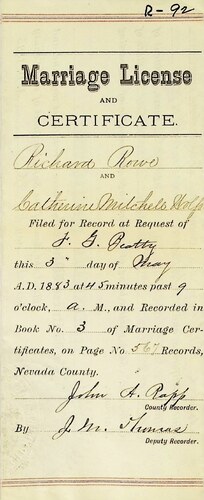 R-92
Marriage License
AND
CERTIFICATE.
Richard Rowe
AND
Catherine Mitchell Wolfe
Filed for Record at Request of
F. G. Beatty
this 3" day of May
A.D. 1883 at 45 minutes past 9
o'clock, a. M., and Recorded in
Book No. 3 of Marriage Cer-
tificates, on Page No 567 Records,
Nevada County.
John A. Rapp
County Recorder.
By J. M. Thomas
Deputy Recorder.